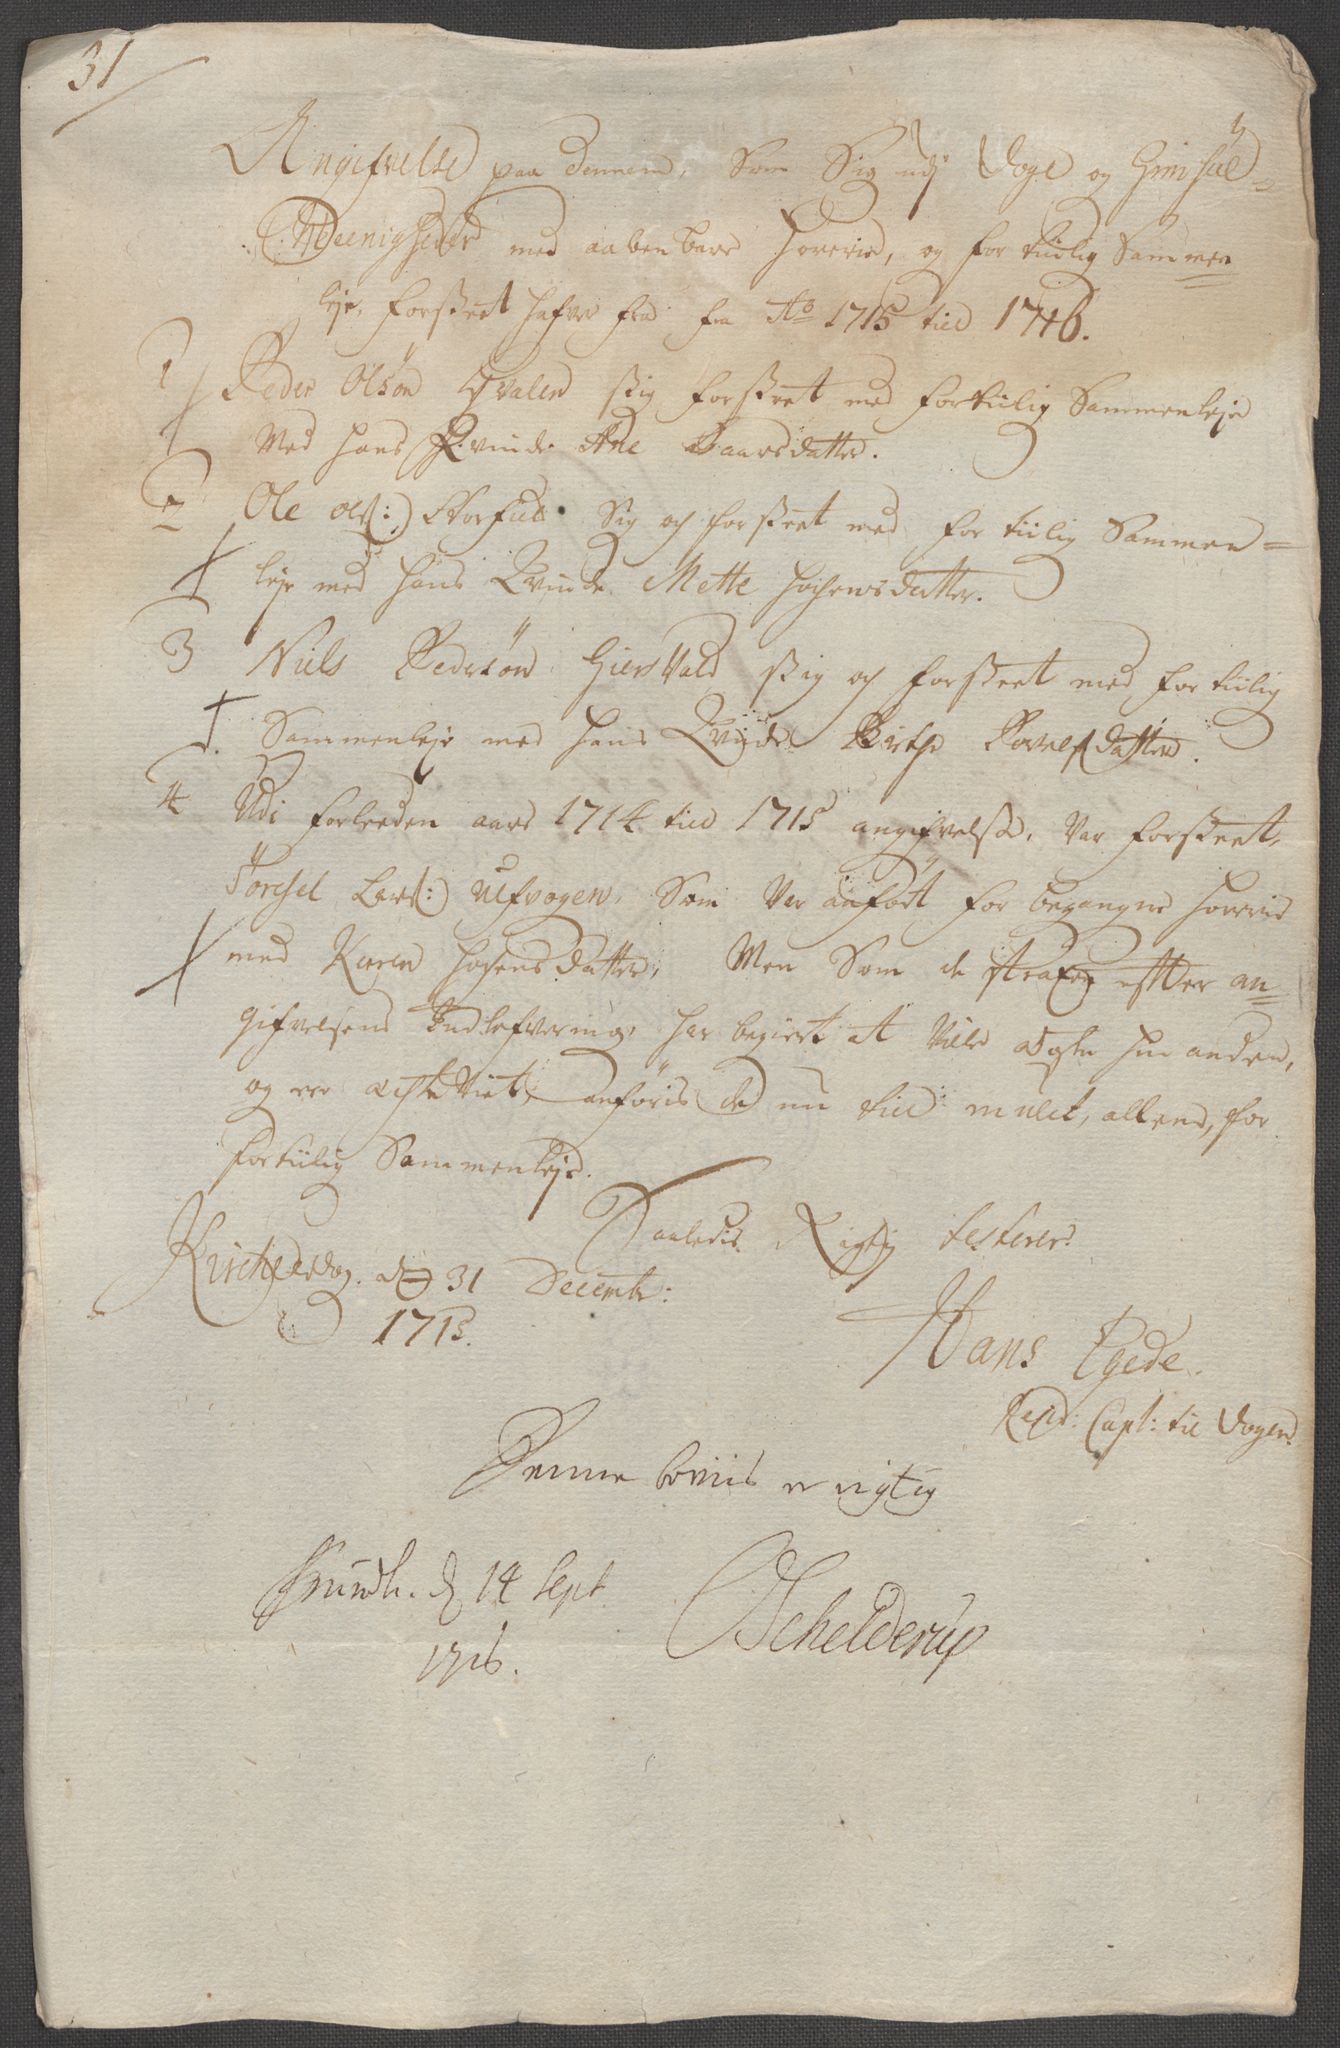 31
Angifvelse paa dennem, Som Sig udj Voge og Gimsøe
Meenigheder med aabenbare Horerie, og for tiilig Sammen
leje, forseet hafve fra fra Ao 1715 till 1716.
1 Peder Olsøn Hvalen sig forseet med fortiilig Sammenleje
Med hans Qvinde Ane Baarsdatter.
2 Ole Ols:) Sig och forseet med for tiilig Sammen=
leje med hans Qvinde Mette
3 Niels Pedersøn sig och forseet med for tiilig
Sammenleje med hans Qvinde Birthe Povelsdatter.
4 Udi forleeden aars 1714 till 1715 angifvelse, Var forseet,
Torchel Lars:) Ulfvogen, Som Var anført for begangne horerie
med Karen Men Som de strax efter an=
gifvelsens Indlefvering, har begiert at Ville ægte hin anden,
og ere ægteviet, anføris de nu till mulct, allene, for
fortiilig Sammenleje.
Saaledis Rigtig testerer.
d 31 Decembr:
1715.
Hans Egede.
Resid: Capl: til Vogen.
Denne bevis er rigtig
d 14 Sept
1716.
Schelderup